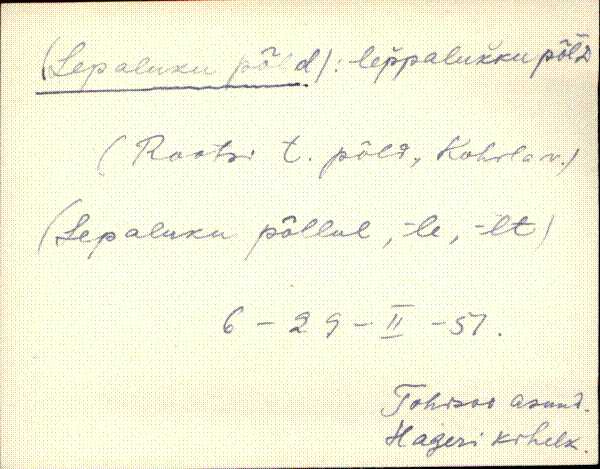 (Lepaluku põld): leppalukku põld
(Rootsi t. põld, Kohila v.)
(Lepaluku põllul, -le, -lt)
6 - 29 - II - 51.
Tohisoo asund.
Hageri kihelk.